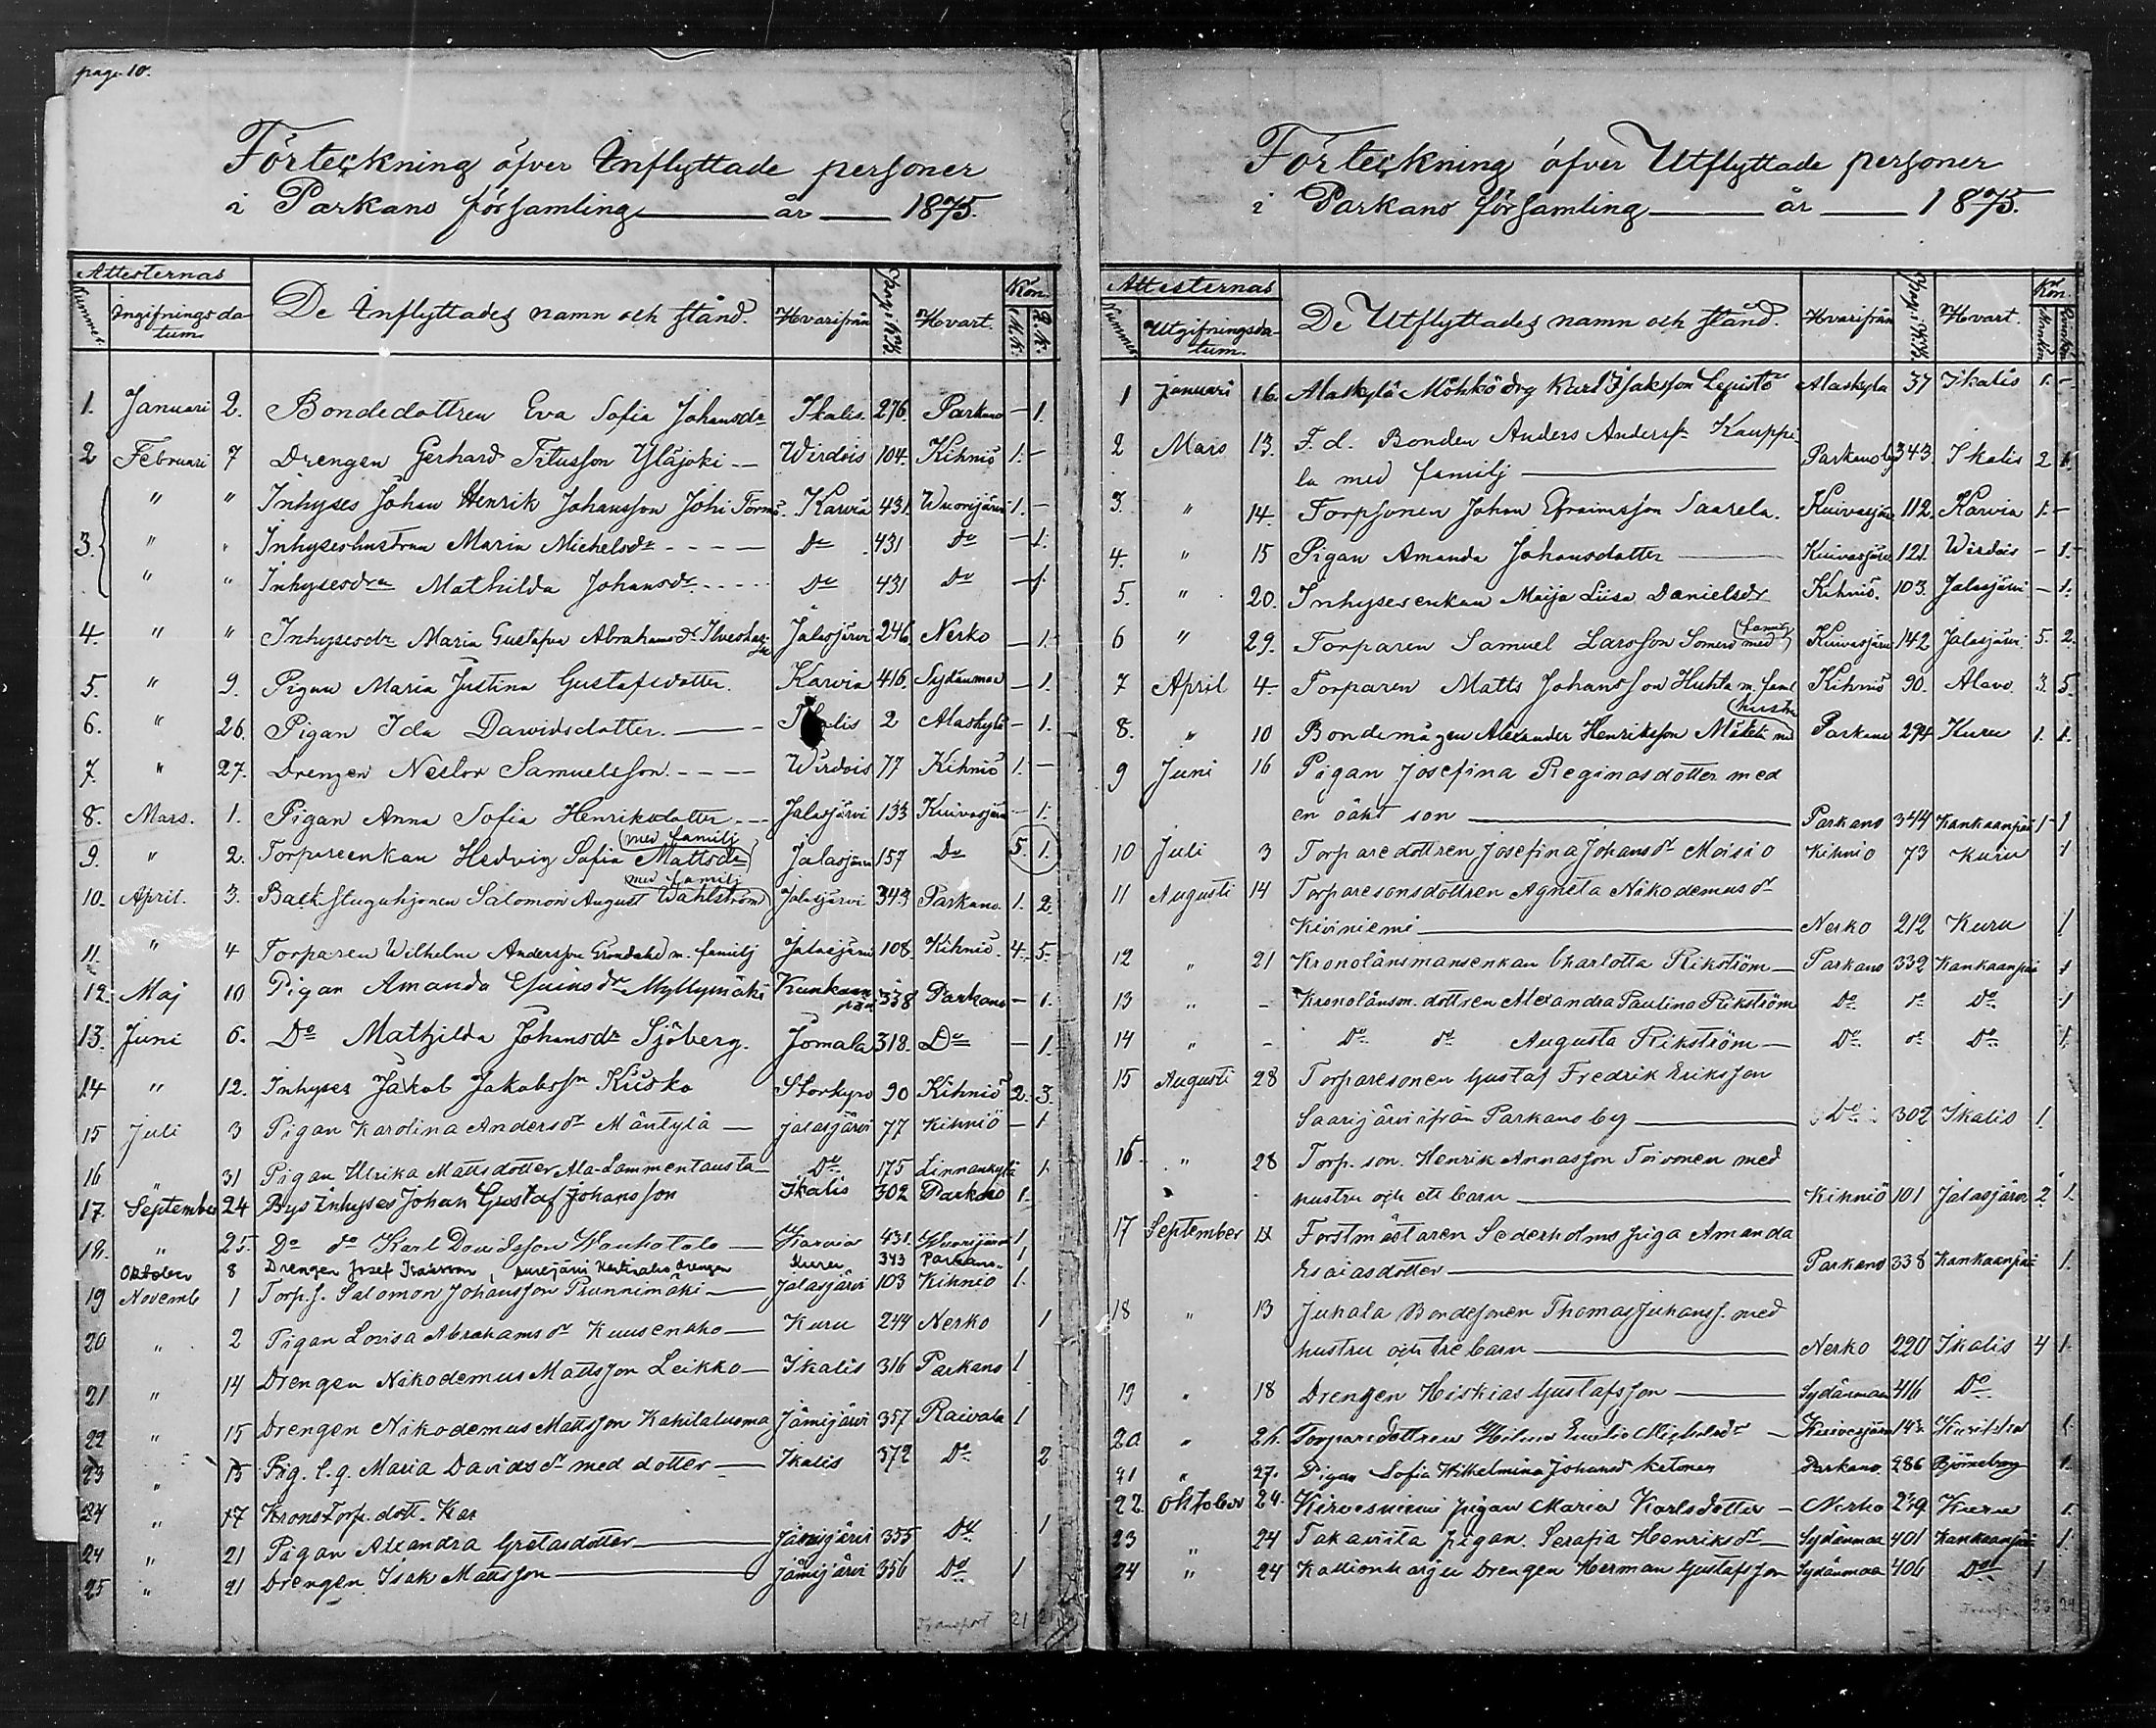 page. 10.
Förteckning öfver Inflyttade personer
i Parkano församling år 1875.
Attesternas
Nummer. Ingifnings datum. De Inflyttades namn och stånd. Hvarifrån Pag. i K.B. Hvart. Kön. M.k. Q.k.
1. Januari 2. Bondedottren Eva Sofia Johansdr Ikalis 276. Parkano – 1.
2 Februari 7 Drengen Gerhard Titusson Yläjoki Wirdois 104. Kihniö 1. –
" " Inhyses Johan Henrik Johansson Johi Karvia 431. Wuorijärvi 1. –
3. " " Inhyseshustrun Maria Michelsdr Do 431 Do – 1.
" " Inhysesdrn Mathilda Johansdr Do 431 Do – 1.
4. " " Inhysesdr Maria Gustafva Abrahamsdr Jalasjärvi 246 Nerko – 1.
5. " 9. Pigan Maria Justina Gustafsdotter. Karvia 416. Sydänmaa – 1.
6. " 26. Pigan Ida Davidsdotter. Ikalis 2 Alaskylä – 1.
7. " 27. Drengen Nestor Samuelsson. Wirdois 77 Kihniö 1. –
8. Mars. 1. Pigan Anna Sofia Henriksdotter Jalasjärvi 133 Kuivasjärvi – 1.
9. " 2. Torpareenkan Hedvig Sofia Mattsdr (med familj) Jalasjärvi 157 Do 5. 1.
10. April. 3. Backstuguhjonen Salomon August Wahlström (med familj) Jalasjärvi 343 Parkano. 1. 2.
11. " 4 Torparen Wilhelm Andersson Grondahl m. familj Jalasjärvi 108. Kihniö. 4. 5.
12. Maj 10 Pigan Amanda Esaiasdr Myllymäki Kankaanpää 338 Parkano – 1.
13. Juni 6. Do Mathilda Johansdr Sjöberg. Jomala 318. Do – 1.
14 " 12. Inhyses Jakob Jakobsson Kusko Storkyro 90 Kihniö 2. 3.
15 Juli 3 Pigan Karolina Andersdr Mäntylä Jalasjärvi 77 Kihniö – 1
16 " 31 Pigan Ulrika Mattsdotter Ala-Lammentausta Do 175 Linnankylä 1.
17. September 24 Bys Inhyses Johan Gustaf Johansson Ikalis 302 Parkano 1.
18. " 25. Do do Karl Davidsson Karvia 431. Wuorijärvi 1
Oktober 8 Drengen Josef Isaksson Kuru 343 Parkano 1
19 Novemb 1 Torp.s. Salomon Johansson Prunnimäki Jalasjärvi 103 Kihniö 1.
20 " 2 Pigan Lovisa Abrahamsdr Kuusenoho Kuru 244 Nerko 1
21 " 14 Drengen Nikodemus Mattsson Leikko Ikalis 316 Parkano 1
22 " 15 Drengen Nikodemus Mattsson Kahilaluoma Jämijärvi 357 Raivala 1
23 " 15 Pig. l.q. Maria Davidsdr med dotter Ikalis 372 Do 2
24 " 17 Krons Torp. dott. Kar
24 " 21 Pigan Alexandra Gretasdotter Jämijärvi 355 Do 1
25 " 21 Drengen Isak Mattsson Jämijärvi 356 Do 1
Transport 21
Förteckning öfver Utflyttade personer
i Parkano församling år 1875.
Attesternas
Nummer. Utgifningsdatum. De Utflyttades namn och stånd. Hvarifrån Pag. i K.B. Hvart. Kön. Mankön. Qvinkön
1 Januari 16. Alaskylä Möhkö drg Karl Isaksson Lepistö Alaskylä 37 Ikalis 1. –
2 Mars 13. F.d. Bonden Anders Anderss. Kauppi
la med familj Parkano by 343. Ikalis 2
3. " 14. Torpsonen Johan Efraimsson Saarela. Kuivasjärvi 112. Karvia 1. –
4. " 15 Pigan Amanda Johansdotter Kuivasjärvi 121. Wirdois – 1.
5. " 20. Inhysesenkan Maija Liisa Danielsdr Kihniö. 103. Jalasjärvi – 1.
6 " 29. Torparen Samuel Larsson Somero med familj Kuivasjärvi 142 Jalasjärvi. 5. 2.
7 April 4. Torparen Matts Johansson Huhta m. faml Kihniö 90. Alavo 3. 5.
8. " 10 Bondemågen Alexander Henriksson Mäkelä med hustru Parkano 294 Kuru 1. 1.
9 Juni 16 Pigan Josefina Reginasdotter med
en oäkt son Parkano 344 Kankaanpää 1 1
10 Juli 3 Torparedottren Josefina Johansdr Moisio Kihniö 73 Kuru 1
11 Augusti 14 Torparesonsdottren Agneta Nikodemusdr
Kiviniemi Nerko 212 Kuru 1
12 " 21 Kronolänsmansenkan Charlotta Rikström Parkano 332 Kankaanpää 1
13 " – Kronolänsm. dottren Alexandra Paulina Rikström Do do Do 1
14 " – Do do Augusta Rikström Do do Do 1.
15 Augusti 28 Torparesonen Gustaf Fredrik Eriksson
Saarijärvi ifrån Parkano by Do 302 Ikalis 1.
16 " 28 Torp. son. Henrik Annasson Toivonen med
hustru och ett barn Kihniö 101 Jalasjärvi 2 1.
17 September 11 Forstmästaren Sederholms piga Amanda
Esaiasdotter Parkano 338 Kankaanpää 1.
18 " 13 Juhala Bondesonen Thomas Juhanss. med
hustru och tre barn Nerko 220 Ikalis 4 1.
19 " 18 Drengen Hiskias Gustafsson Sydänmaa 416 Do
20 " 26. Torparedottren Hilma Emilia Michelsdr Kuivasjärvi 143. 1.
21 " 27. Pigan Sofia Wilhelmina Johansdr Ketonen Parkano. 286 Björneborg 1.
22. Oktober 24. Kirvesniemi pigan Maria Karlsdotter Nerko 219 Kuru 1.
23 " 24 Takaviita pigan. Serafia Henriksdr Sydänmaa 401 Kankaanpää 1.
24 " 24 Kallionharju Drengen Herman Gustafsson Sydänmaa 406 Do 1
23 24